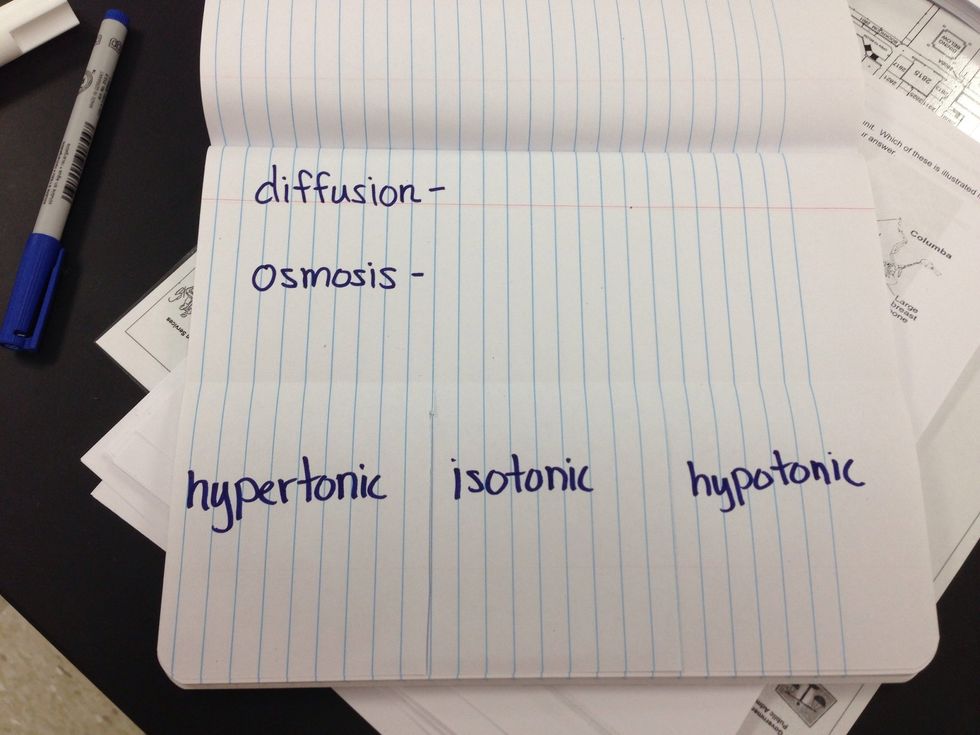 diffusion-
osmosis -
hypertonic isotonic hypotonic
unit. Which of these is illustrated
answer
Columba
Large
breast
bone
2615
Services
Public Adm